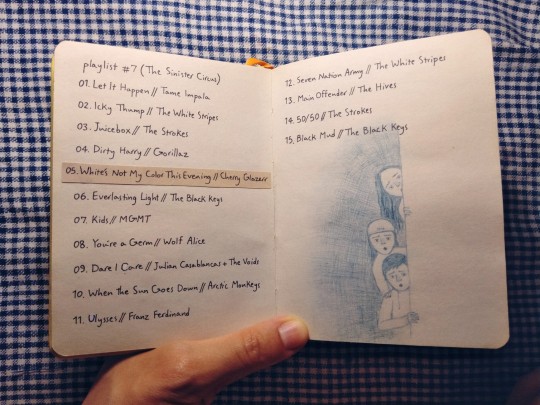 playlist #7 (The Sinister Circus)
01. Let It Happen // Tame Impala
02. Icky Thump // The White Stripes
03. Juicebox // The Strokes
04. Dirty Harry // Gorillaz
05. White's Not My Color This Evening // Cherry Glazerr
06. Everlasting Light // The Black Keys
07. Kids // MGMT
08. You're a Germ // Wolf Alice
09. Dare I Care // Julian Casablancas + The Voidz
10. When the Sun Goes Down // Arctic Monkeys
11. Ulysses // Franz Ferdinand
12. Seven Nation Army // The White Stripes
13. Main Offender // The Hives
14. 50/50 // The Strokes
15. Black Mud // The Black Keys